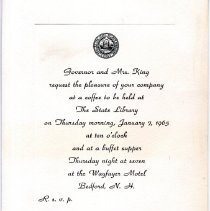 Governor and Mrs. King
request the pleasure of your company
at a coffee to be held at
The State Library
on Thursday morning, January 7, 1965
at ten o'clock
and at a buffet supper
Thursday night at seven
at the Wayfarer Motel
Bedford, N. H.
R. s. v. p.